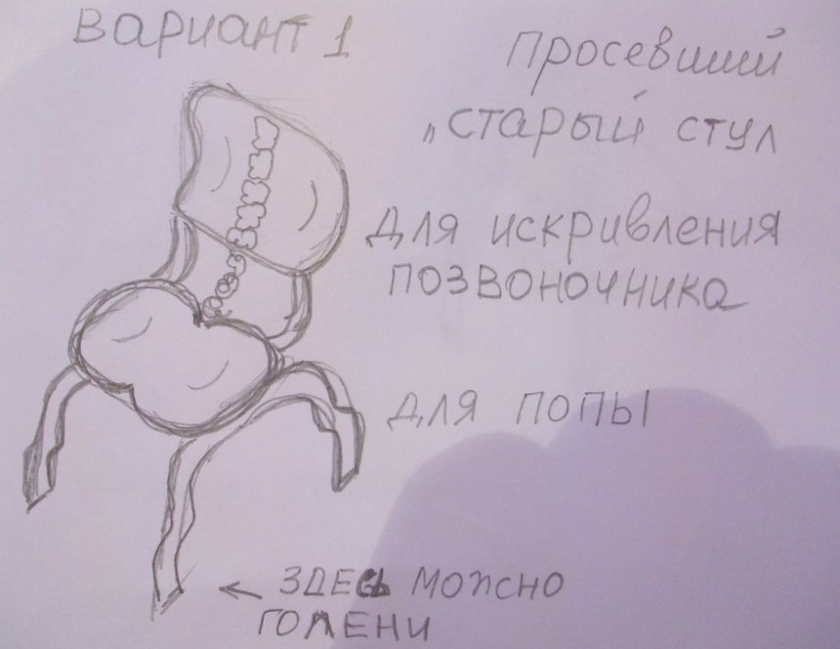 Вариант 1
Просевший
„старый стул
Для искривления
позвоночника
Для попы
← Здесь можно
голени